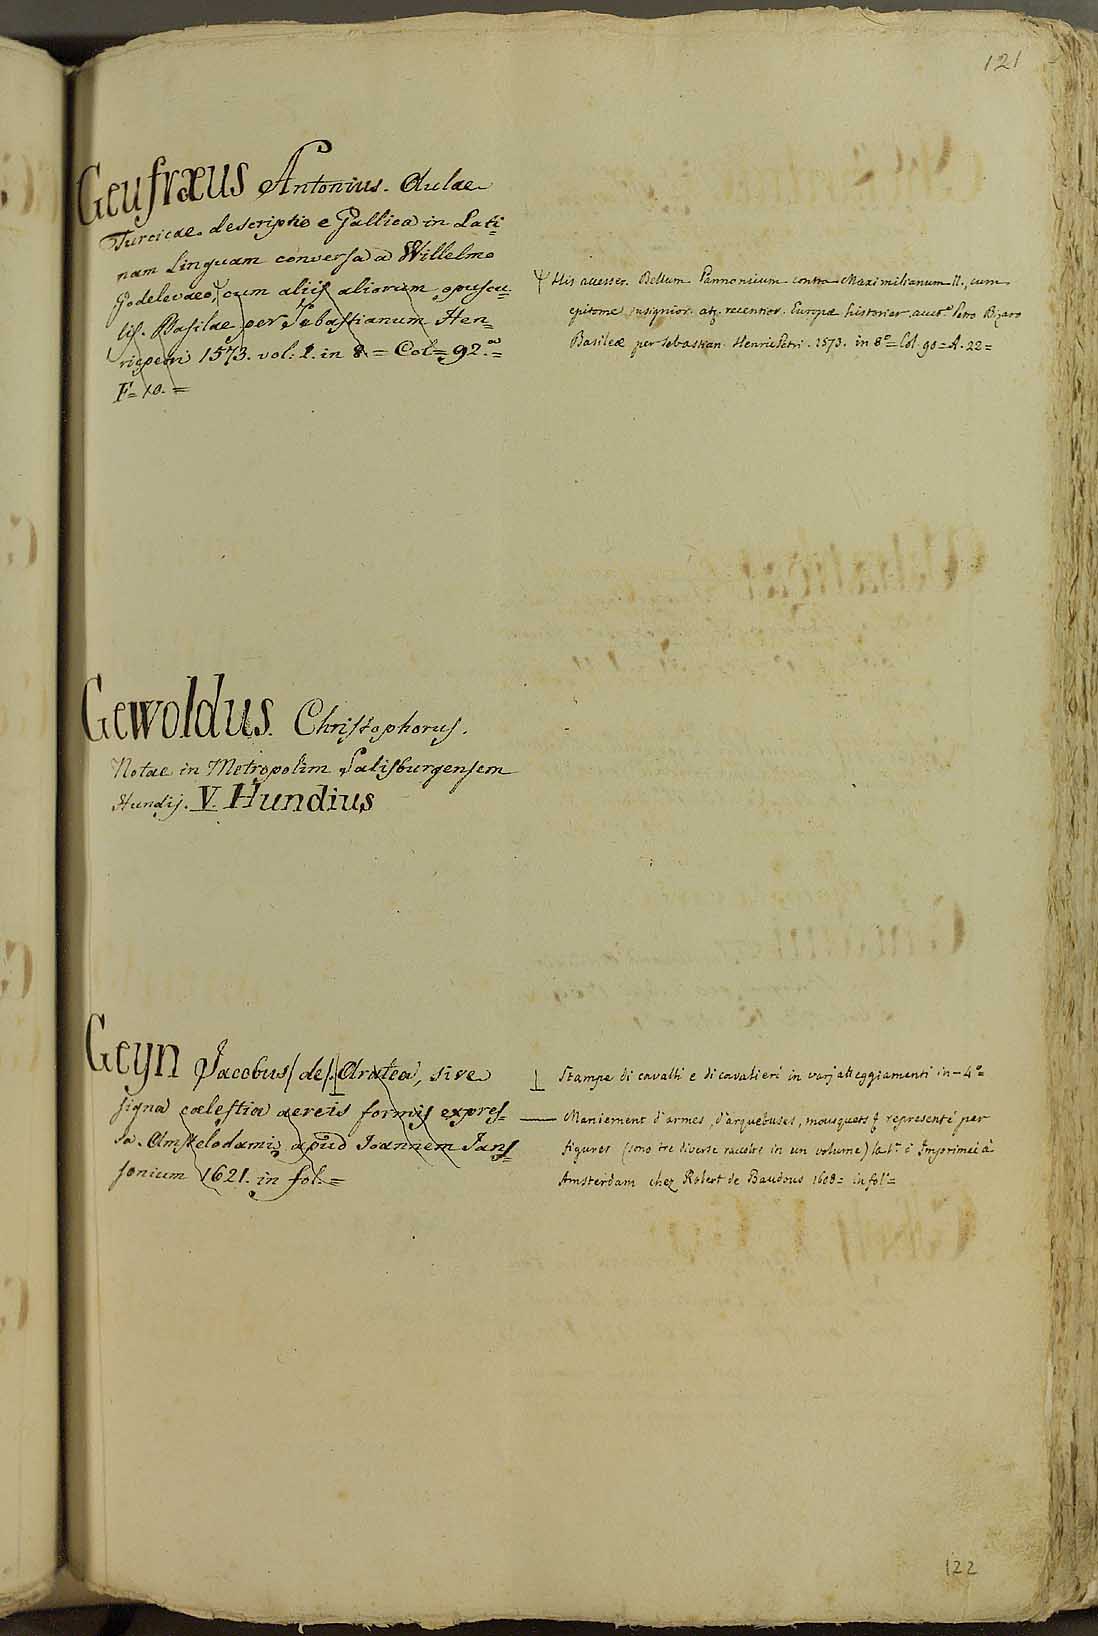 121
Geufræus Antonius. Aulae
Turcicae descriptio e Gallica in Lati-
nam Linguam conversa a Willelmo
Godelevaeo, cum aliis aliorum opuscu-
lis. Basilae per Sebastianum Hen-
ricpetri 1573. vol: 1. in 8 = Col = 92.a =
F = 10. =
His accesser. Bellum Pannonicum contra Maximilianum II., cum
epitome insignior. atq. recentior. Europæ historiar. auct.e Petro Bizaro
Basileæ per Sebastian. HenricPetri. 1573. in 8.o = Col. 90 = A. 22 =
Gewoldus. Christophorus.
Notae in Metropolim Salisburgensem
Hundij. V. Hundius
Geyn Jacobus (de). Aratea, sive
signa cælestia aereis formis expres-
sa. Amstelodami, apud Joannem Jans-
sonium 1621. in fol. =
Stampe di cavalli e di cavalieri in varj atteggiamenti in - 4.o
— Maniement d'armes, d'arquebuses, mousquets & representé par
figures (sono tre diverse raccolte in un volume) la 1.a è Imprimei à
Amsterdam chez Robert de Baudous 1608 = in fol.o =
122